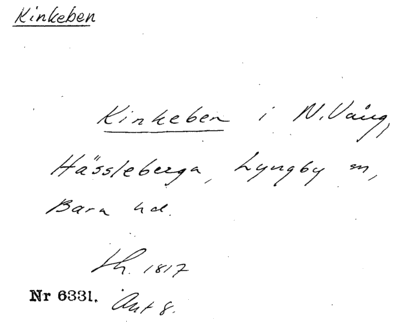 Kinkeben
Kinkeben i N. Vång,
Hässleberga, Lyngby sn,
Bara hd.
1817
Nr 6331. Akt 8.